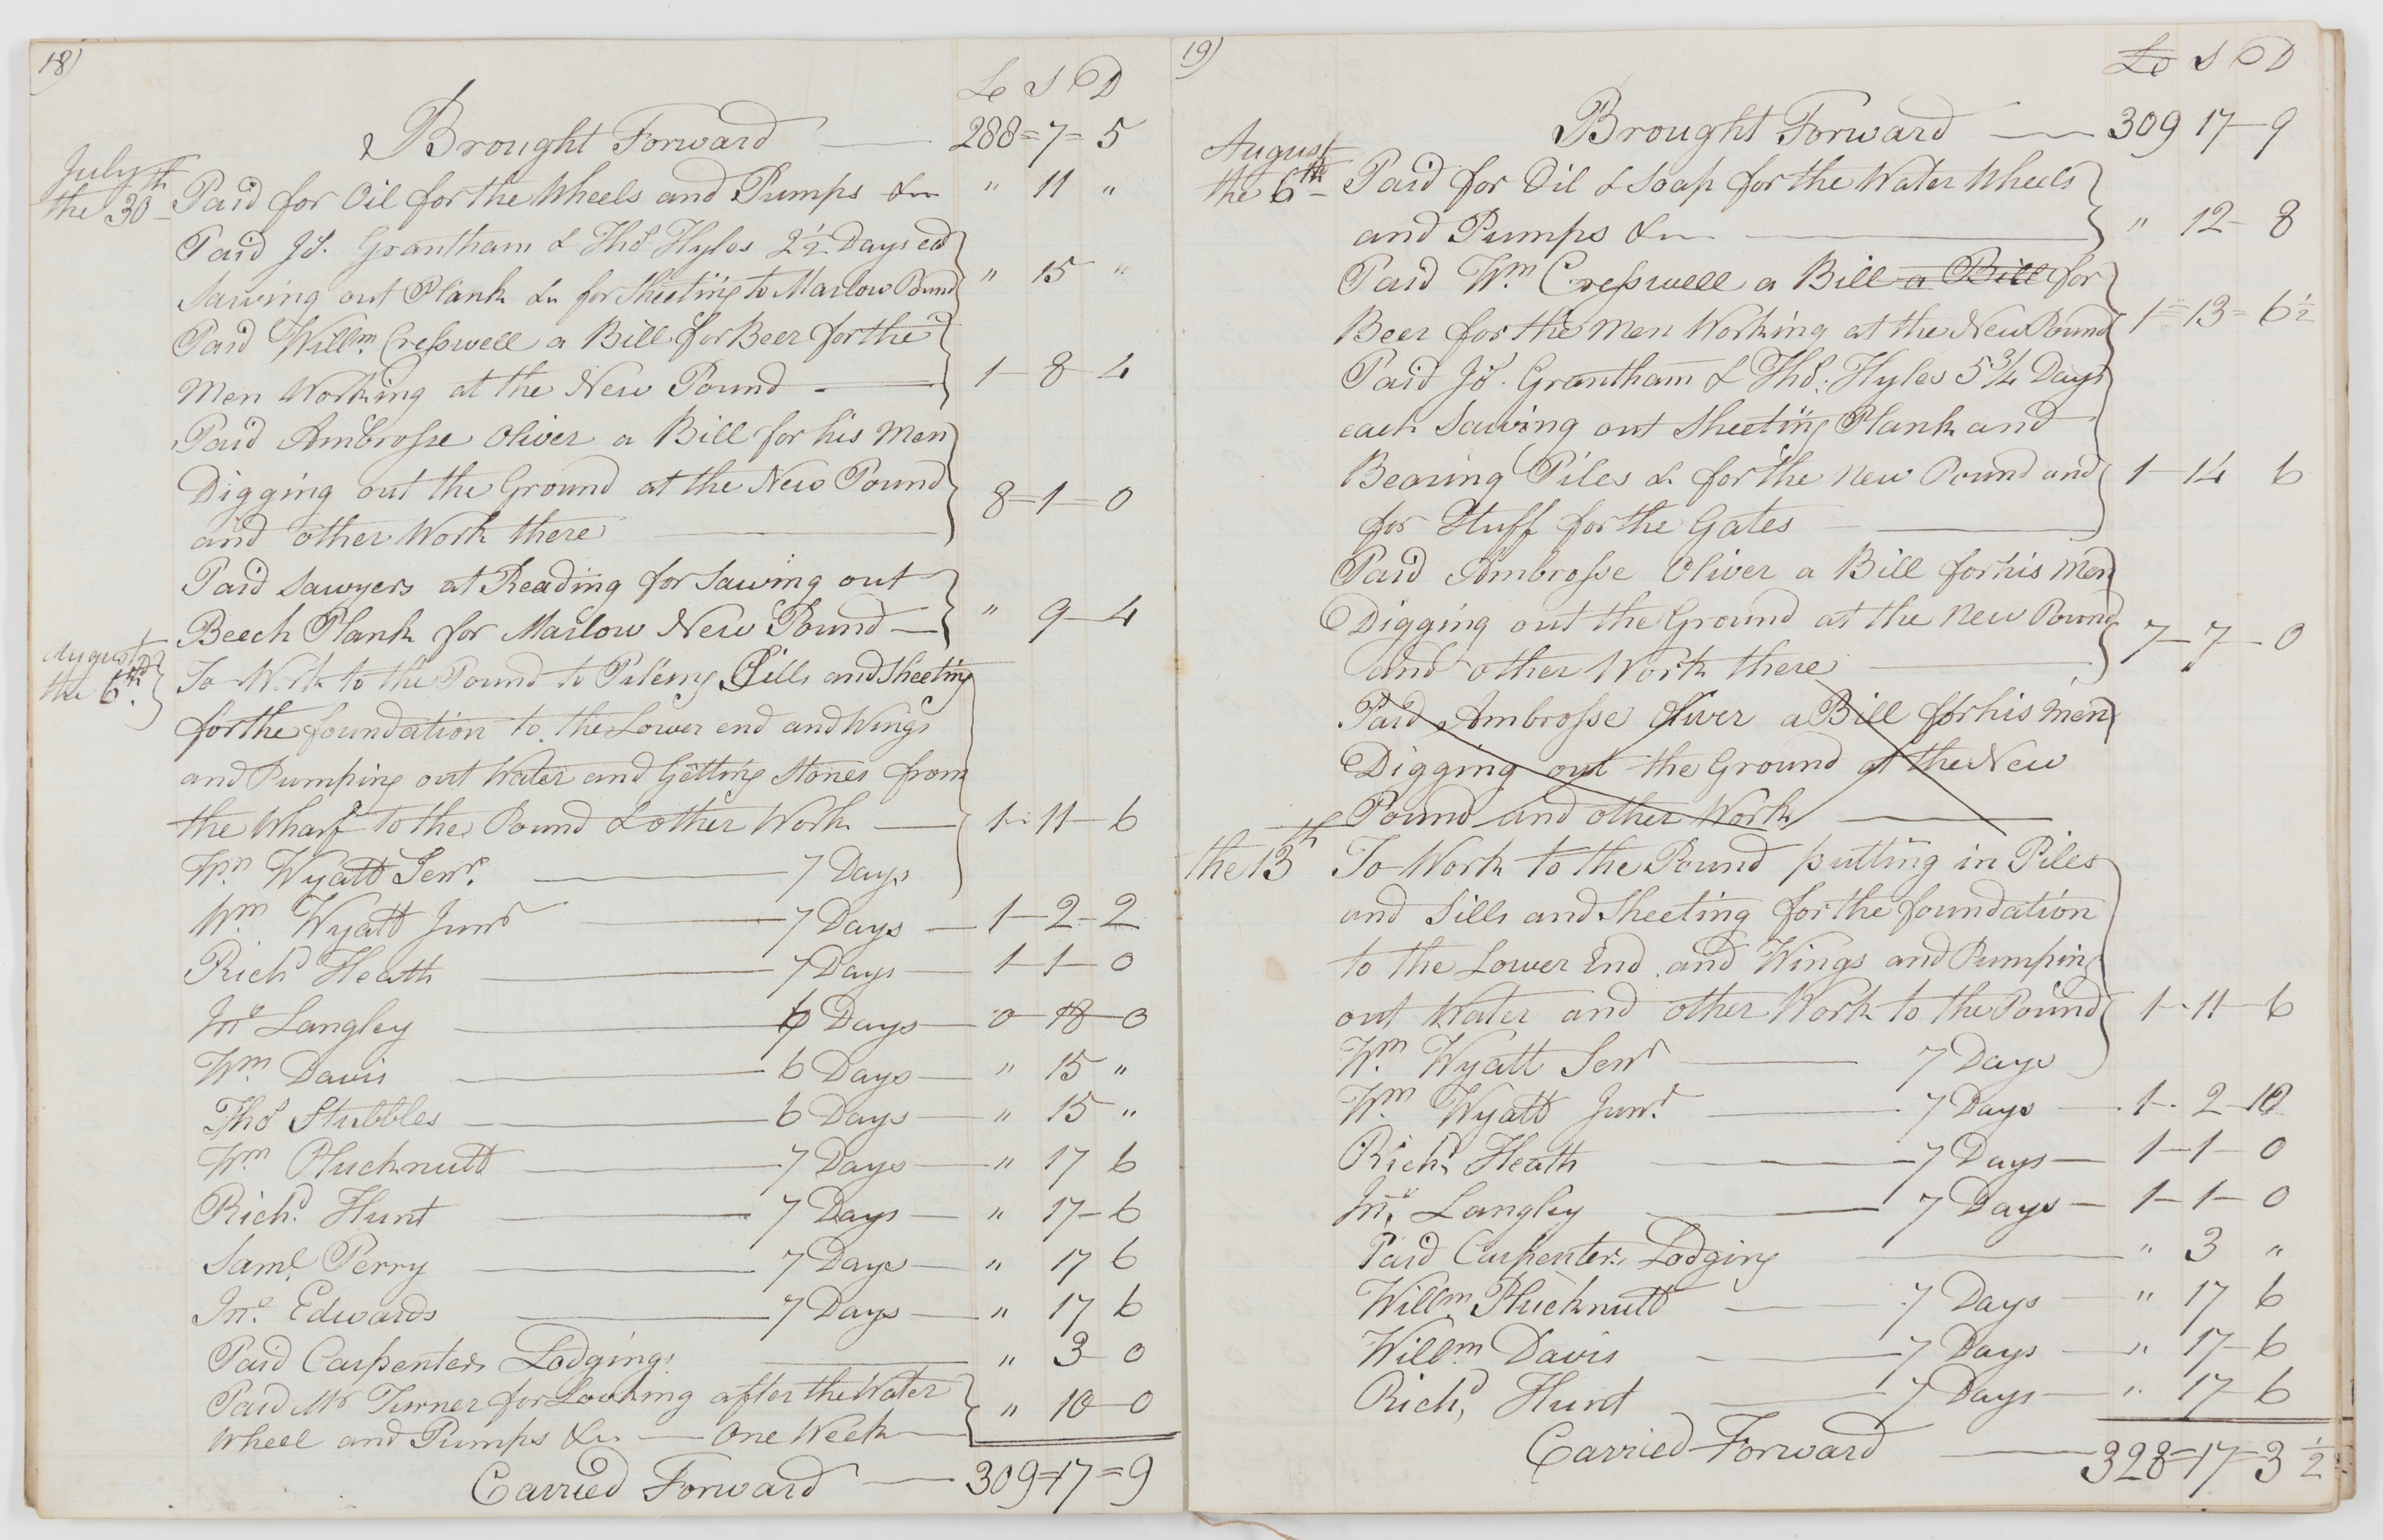 18)
£ S D
Brought Forward 288=7=5
July
the 30th Paid for Oil for the Wheels and Pumps &c " 11 "
Paid Jos. Grantham & Thos Hyles 2½ Days ea
Sawing out Plank &c for Sheeting to Marlow Pound " 15 "
Paid Willm. Creſswell a Bill for Beer for the
Men Working at the New Pound 1-8-4
Paid Ambroſse Oliver a Bill for his Men
Digging out the Ground at the New Pound 8-1=0
and other Work there
Paid Sawyers at Reading for Sawing out
Beech Plank for Marlow New Pound " 9-4
August
the 6th. To Work to the Pound to Pileing Sills and Sheeting
for the foundation to the Lower end and Wings
and Pumping out Water and Getting Stones from
the Wharf to the Pound & other Work 1-11-6
Wm. Wyatt Senr. 7 Days
Wm. Wyatt Junr 7 Days 1-2-2
Richd Heath 7 Days 1-1-0
Jno Langley 6 Days 0-18-0
Wm. Davis 6 Days " 15 "
Thos Stubbles 6 Days " 15 "
Wm. Plucknutt 7 Days " 17 6
Richd. Hunt 7 Days " 17-6
Saml. Perry 7 Days " 17 6
Jno. Edwards 7 Days " 17 6
Paid Carpenters Lodging " 3-0
Paid Mr Turner for Looking after the Water
Wheel and Pumps &c One Week " 10-0
Carried Forward 309=17=9
19)
£ S D
Brought Forward 309 17-9
August
the 6th Paid for Oil & Soap for the Water Wheels
and Pumps &c " 12-8
Paid Wm. Creſswell a Bill a Bill for
Beer for the Men Working at the New Pound 1=13=6½
Paid Jos. Grantham & Thos. Hyles 5¾ Days
each Sawing out Sheeting Plank and
Bearing Piles &c for the New Pound and 1-14 6
for Stuff for the Gates
Paid Ambroſse Oliver a Bill for his Men
Digging out the Ground at the New Pound 7-7-0
and other Work there
Paid Ambroſse Oliver a Bill for his Men
Digging out the Ground at the New
Pound and other Work
the 13th To Work to the Pound putting in Piles
and Sills and Sheeting for the foundation
to the Lower End and Wings and Pumping
out Water and other Work to the Pound 1-11-6
Wm. Wyatt Senr 7 Days
Wm. Wyatt Junr. 7 Days 1-2-10
Richd. Heath 7 Days 1-1-0
Jno. Langley 7 Days 1-1-0
Paid Carpenters Lodging " 3 "
Willm. Plucknutt 7 Days " 17 6
Willm. Davis 7 Days " 17-6
Richd, Hunt 7 Days " 17-6
Carried Forward 328=17-3½